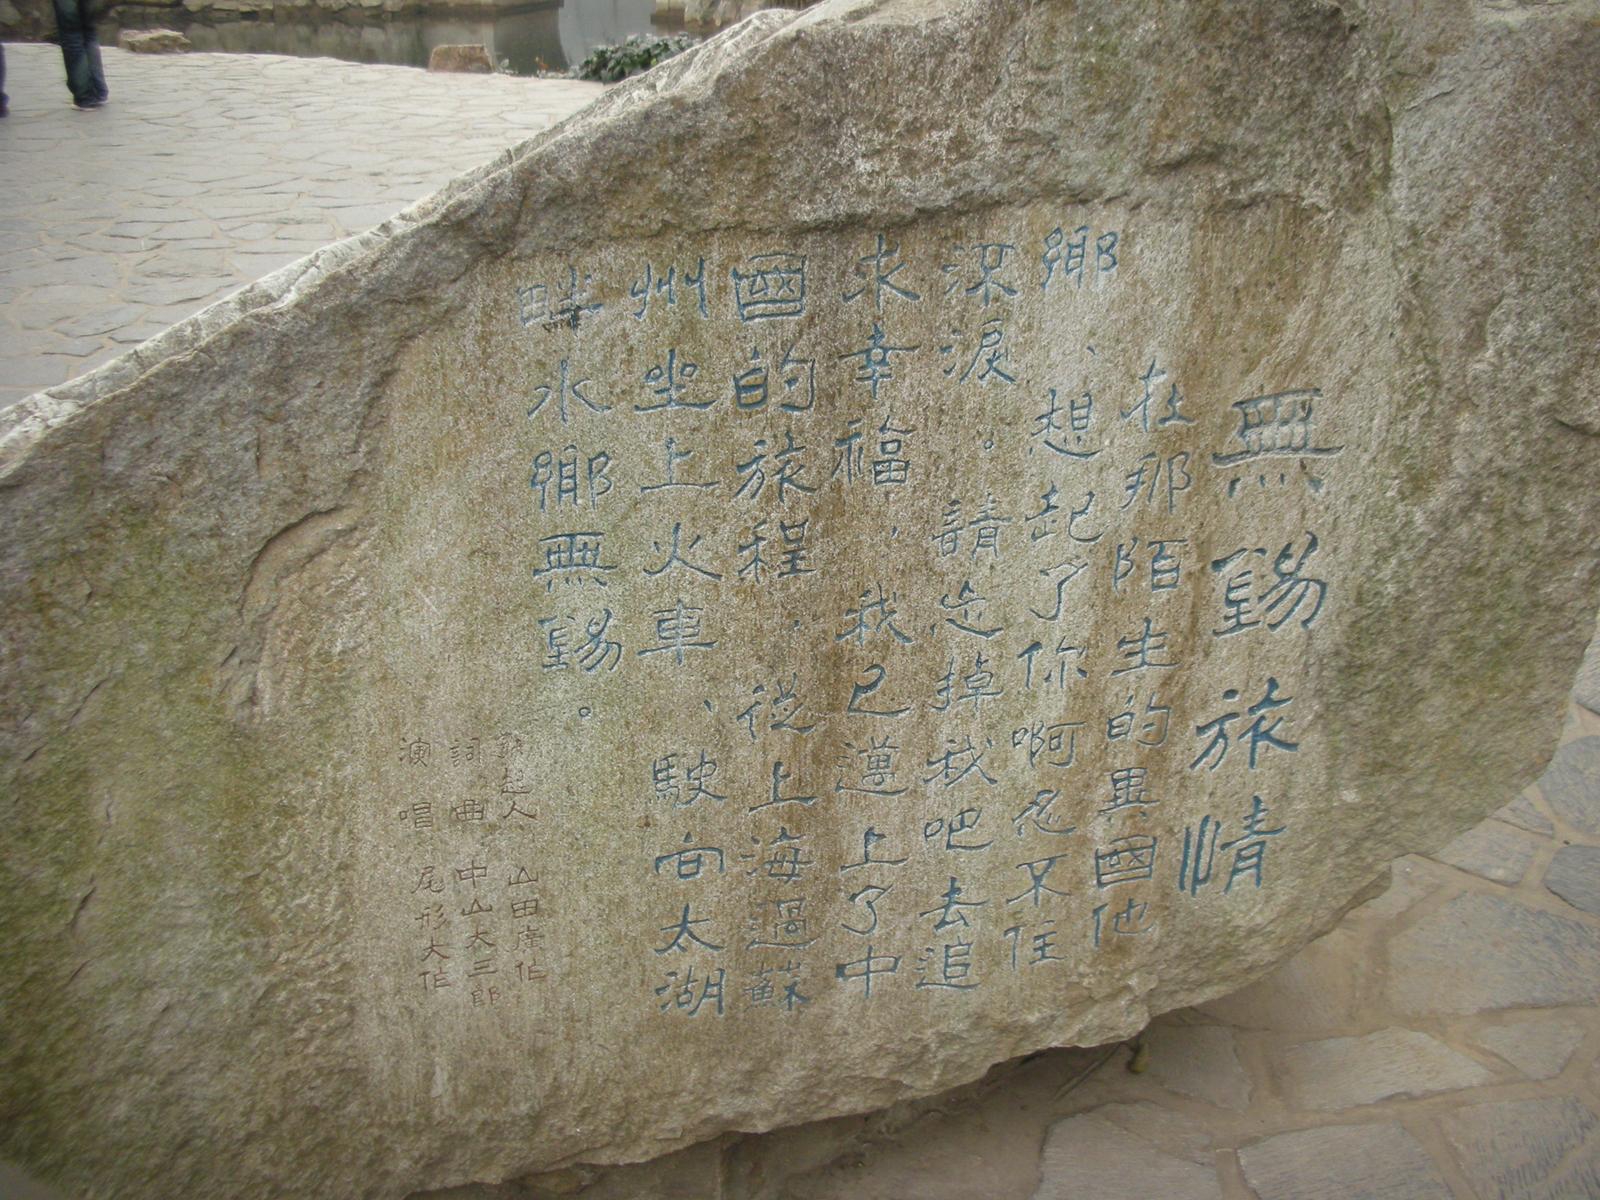 無錫旅情
在那陌生的異國他
鄉、想起了你啊忍不住
深淚。請忘掉我吧去追
求幸福，我已邁上了中
國的旅程，從上海過蘇
州坐上火車、駛向太湖
畔水鄉無錫。
發起人 山田廣作
詞、曲 中山大三郎
演唱 尾形大作